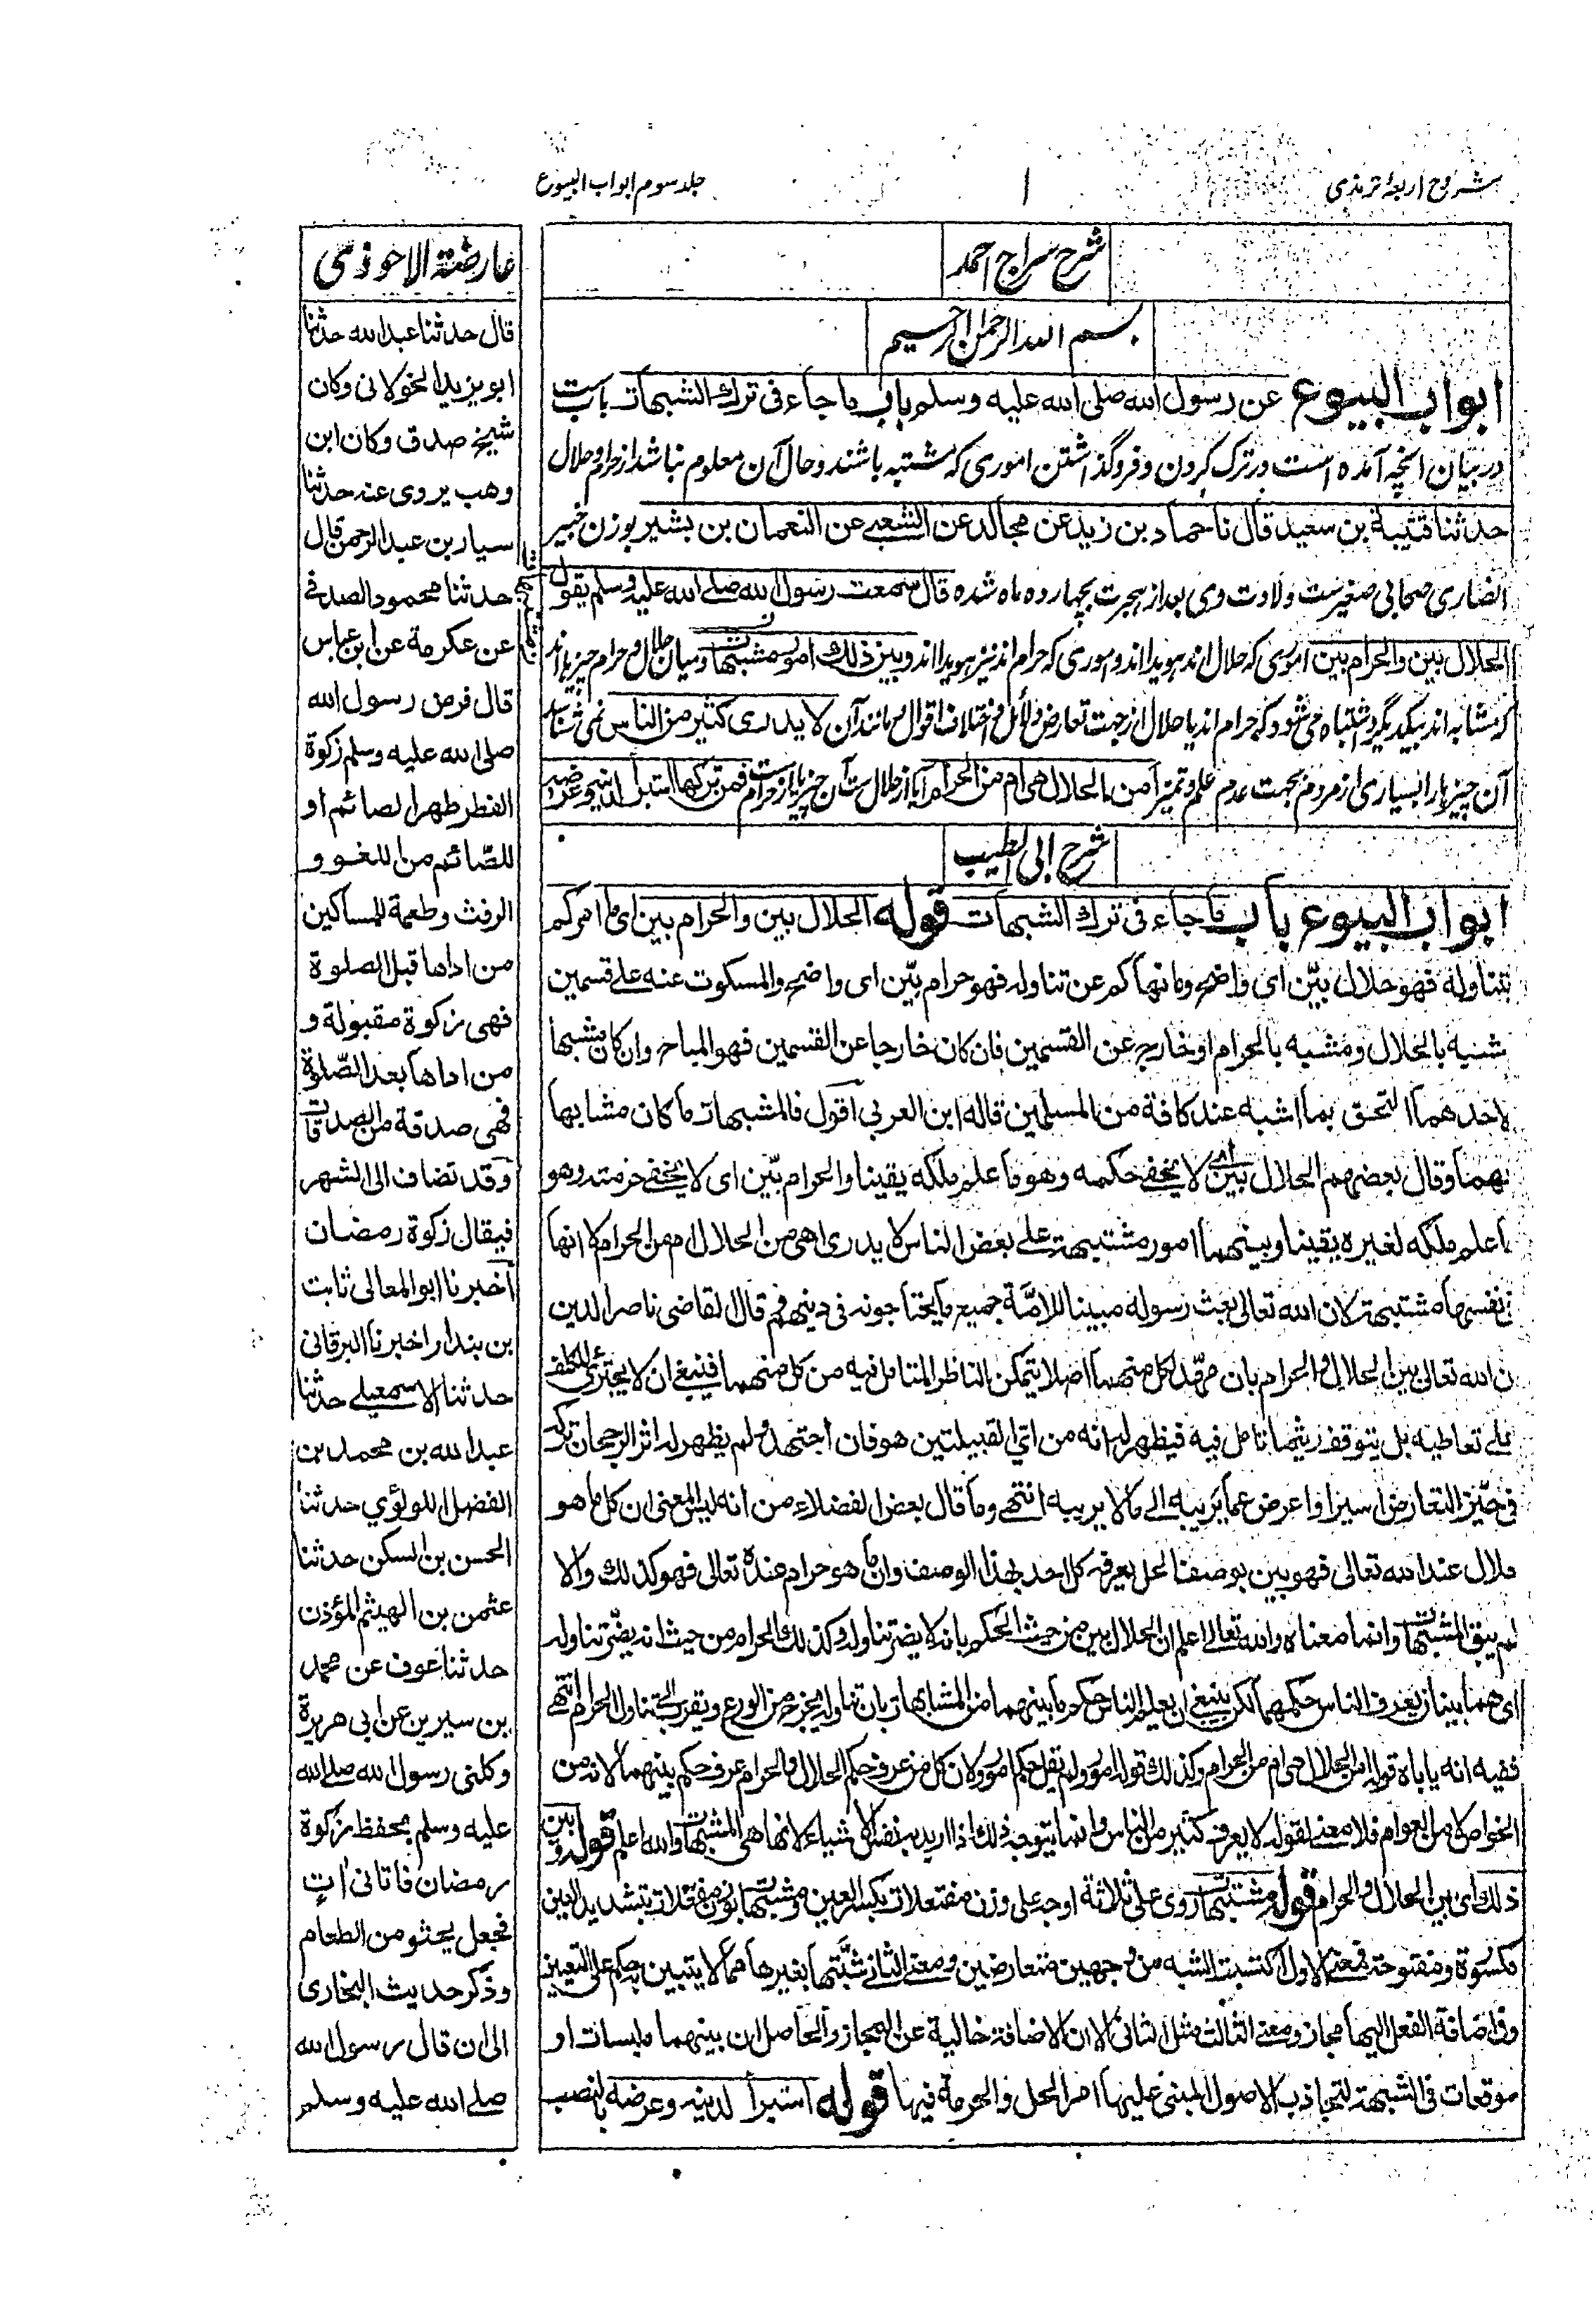 شروح اربعه ترمذی
۱
جلد سوم ابواب البیوع
شرح سراج احمد
بسم الله الرحمن الرحیم
ابواب البیوع عن رسول الله صلی الله علیه وسلم باب ما جاء فی ترك الشبهات بابست
در بیان انچه آمده است در ترک کردن و فروگذاشتن اموری که مشتبه باشند و حال آن معلوم نباشد از حرام و حلال
حدثنا قتیبة بن سعید قال نا حماد بن زید عن مجالد عن الشعبی عن النعمان بن بشیر بوزن خبیر
انصاری صحابی صغیرست ولادت وی بعد از هجرت بچهارده ماه شده قال سمعت رسول الله صلی الله علیه وسلم یقول
الحلال بین والحرام بین اموری که حلال اند هویدا اند و اموری که حرام اند نیز هویدا اند وبین ذلك امور مشتبهات ومیان حلال و حرام چیزها اند
که مشابه اند بیکدیگر و اشتباه می شود که حرام اند یا حلال از جهت تعارض دلائل و اختلاف اقوال و مانند آن لا یدری کثیر من الناس نمی شناسد
آن چیزها را بسیاری از مردم بجهت عدم علم و تمیز أمن الحلال هی ام من الحرام آیا از حلال ست آن چیز یا از حرام ست فمن ترکها استبرأ لدینه وعرضه
شرح ابی الطیب
ابواب البیوع باب ما جاء فی ترك الشبهات قوله الحلال بین والحرام بین ای ما امرکم
بتناوله فهو حلال بیّن ای واضح وما نهاکم عن تناوله فهو حرام بیّن ای واضح والمسکوت عنه علی قسمین
شبیه بالحلال ومشبه بالحرام او خارج عن القسمین فان کان خارجا عن القسمین فهو المباح وان کان مشبها
لاحدهما التحق بما اشبه عند کافة من المسلمین قاله ابن العربی اقول فالمشبهات ما کان مشابها
بهما وقال بعضهم الحلال بین ای لا یخفی حکمه وهو ما علم ملکه یقینا والحرام بیّن ای لا یخفی حرمته وهو
ما علم ملکه لغیره یقینا وبینهما امور مشتبهة علی بعض الناس لا یدری اهی من الحلال ام من الحرام لا انها
فی نفسها مشتبهة لان الله تعالی بعث رسوله مبینا للامّة جمیع ما یحتاجونه فی دینهم قال القاضی ناصر الدین
ان الله تعالی بین الحلال والحرام بان مهّد لکل منهما اصلا یتمکن الناظر المتامل فیه من کل منهما فینبغی ان لا یجترئ المکلف
علی تعاطیه بل یتوقف ریثما تامل فیه فیظهر له انه من ایّ القبیلتین هو فان اجتهد ولم یظهر له اثر الرجحان ترکه
فی حیّز التعارض اسیرا واعرض عما یریبه الی ما لا یریبه انتهی وما قال بعض الفضلاء من انه لیس المعنی ان کل ما هو
حلال عند الله تعالی فهو بین بوصف الحل یعرفه کل احد بهذا الوصف وان ما هو حرام عنده تعالی فهو کذلك والا
لم یبق المشتبهات وانما معناه والله تعالی اعلم ان الحلال بین من حیث الحکم بانه لا یضر تناوله وکذلك الحرام من حیث انه یضر تناوله
ای هما بینان یعرف الناس حکمهما لکن ینبغی ان یعلم الناس حکم ما بینهما من المشابهات بان تناوله یخرج من الورع ویقرب الی تناول الحرام انتهی
ففیه انه یاباه قوله من الحلال هی ام من الحرام وکذلك قوله امور ولم یقل حکم امور ولان کل من عرف حکم الحلال والحرام عرف حکم بینهما لانه من
الخواص لا من العوام فلا معنی لقوله لا یعرفه کثیر من الناس وانما یتوجه ذلك اذا ارید به نفس الاشیاء لانها هی المشتبهات والله اعلم قوله وبین
ذلك ای بین الحلال والحرام قوله مشتبهات روی علی ثلاثة اوجه علی وزن مفتعلات بکسر العین ومشبهات بوزن مفعلات بتشدید العین
مکسورة ومفتوحة فمعنی الاول اکتسبت الشبه من وجهین متعارضین ومعنی الثانی شبّهتها بغیرها مما لا یتبین به حکم علی التعیین
وفی اضافة الفعل الیها مجاز ومعنی الثالث مثل الثانی الا ان الاضافة خالیة عن المجاز والحاصل ان بینهما ملبسات او
موقعات فی الشبهة لتجاذب الاصول المبنی علیها امر الحل والحرمة فیها قوله استبرأ لدینه وعرضه بالنصب
عارضة الاحوذی
قال حدثنا عبد الله حدثنا
ابو یزید الخولانی وکان
شیخ صدق وکان ابن
وهب یروی عنه حدثنا
سیار بن عبد الرحمن قال
حدثنا محمود الصدفی
عن عکرمة عن ابن عباس
قال فرض رسول الله
صلی الله علیه وسلم زکوة
الفطر طهر الصائم او
للصّائم من اللغو و
الرفث وطعمة للمساکین
من اداها قبل الصلوة
فهی زکوة مقبولة و
من اداها بعد الصّلوة
فهی صدقة من الصدقات
وقد تضاف الی الشهر
فیقال زکوة رمضان
أخبرنا ابو المعالی ثابت
بن بندار اخبرنا البرقانی
حدثنا الاسمعیلی حدثنا
عبد الله بن محمد بن
الفضل اللولوٴی حدثنا
الحسن بن السکن حدثنا
عثمن بن الهیثم المؤذن
حدثنا عوف عن محمد
بن سیرین عن ابی هریرة
وکلنی رسول الله صلی الله
علیه وسلم بحفظ زکوة
رمضان فاتانی اٰتٍ
فجعل یحثو من الطعام
وذکر حدیث البخاری
الی ان قال رسول الله
صلی الله علیه وسلم